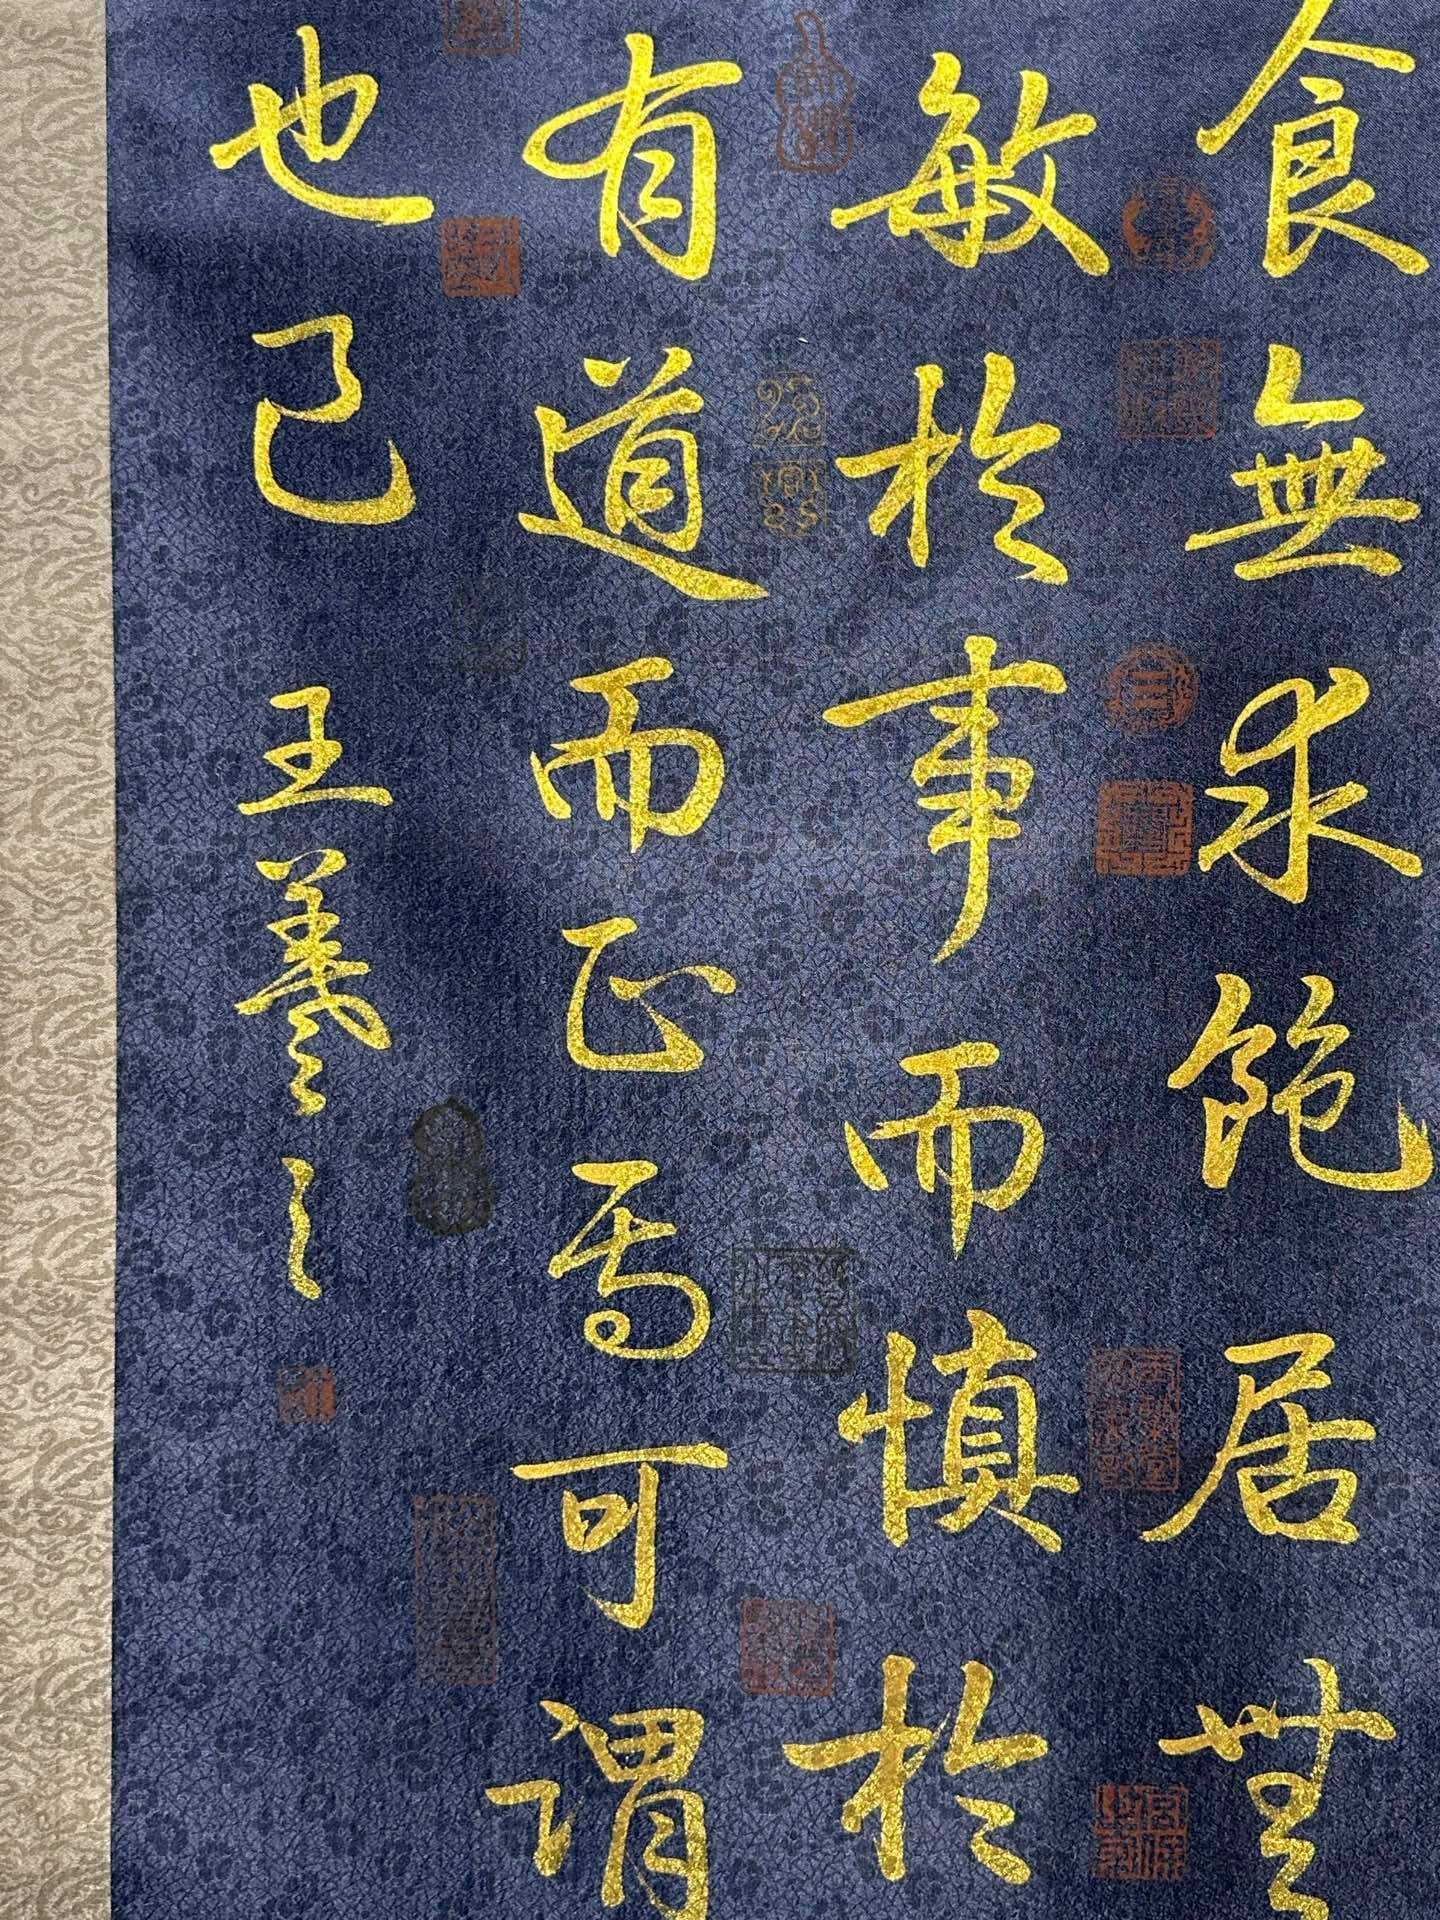 食無求飽居無
敏於事而慎於
有道而正焉可謂
也已
王羲之